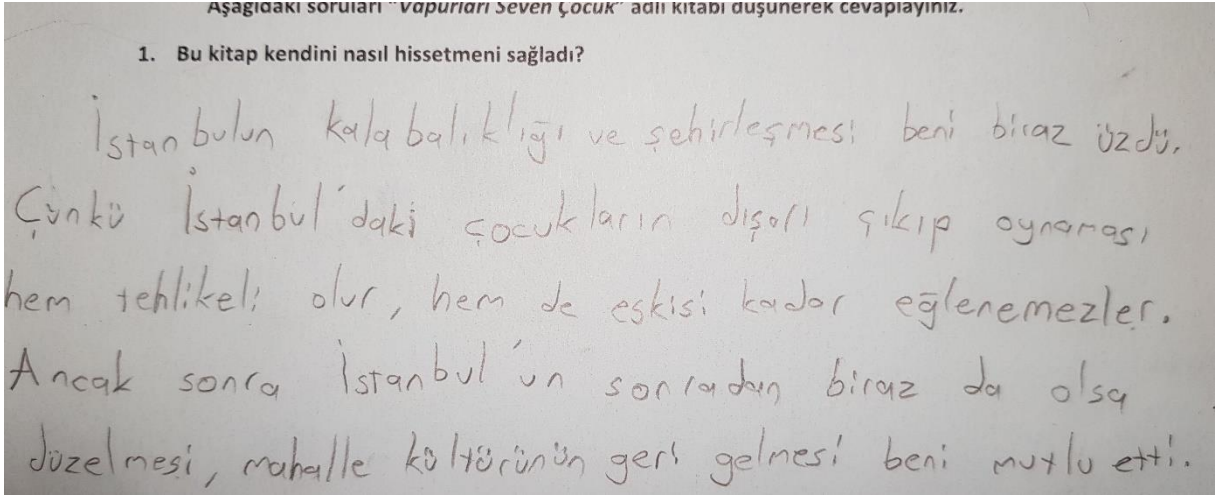 Aşağıdaki soruları "Vapurları Seven Çocuk" adlı kitabı düşünerek cevaplayınız.
1. Bu kitap kendini nasıl hissetmeni sağladı?
İstanbulun kalabalıklığı ve şehirleşmesi beni biraz üzdü.
Çünkü İstanbul'daki çocukların dışarı çıkıp oynaması
hem tehlikeli olur, hem de eskisi kadar eğlenemezler.
Ancak sonra İstanbul'un sonradan biraz da olsa
düzelmesi, mahalle kültürünün geri gelmesi beni mutlu etti.